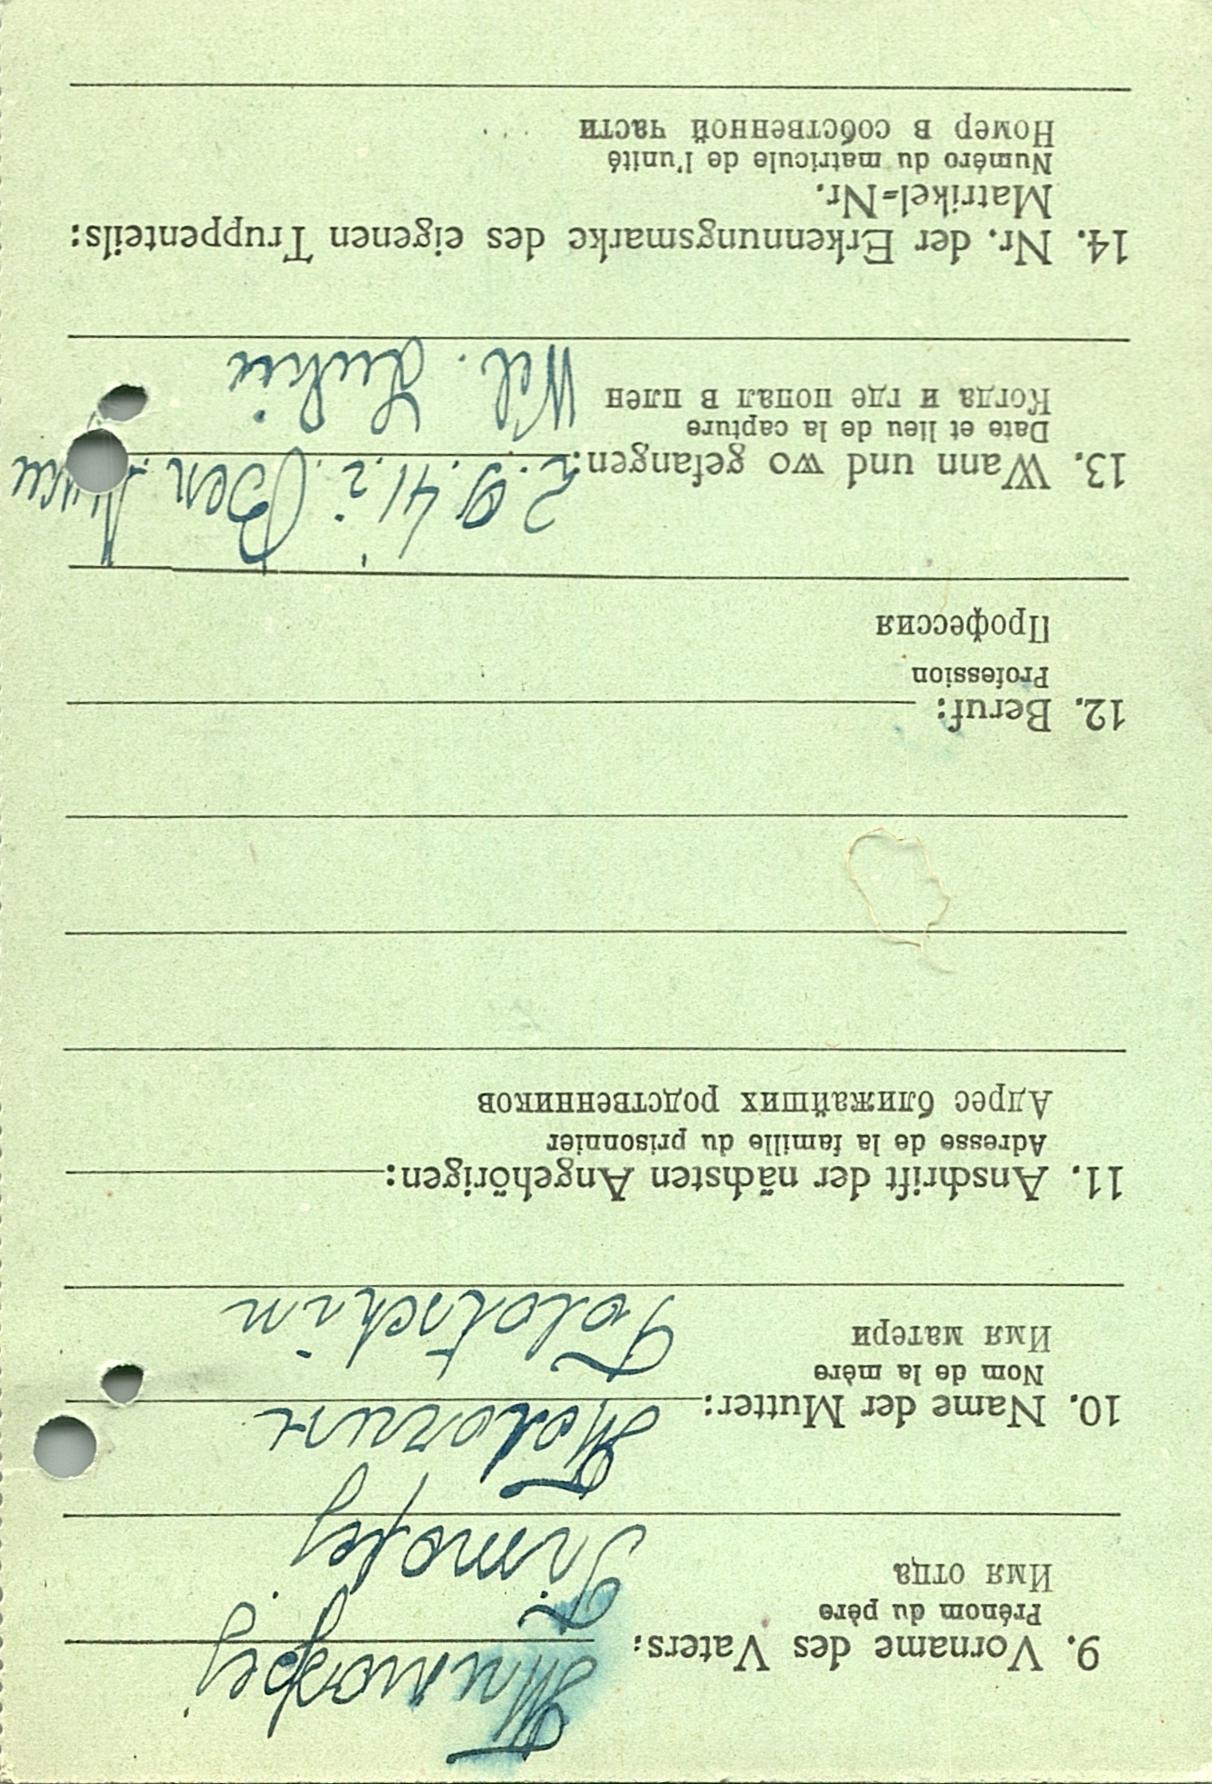 Тимофей
9. Vorname des Vaters:
Prénom du père
Имя отца
Timofej
10. Name der Mutter:
Nom de la mère
Имя матери
Tolotschin
11. Anschrift der nächsten Angehörigen:
Adresse de la famille du prisonnier
Адрес ближайших родственников
12. Beruf:
Profession
Профессия
13. Wann und wo gefangen: 2.9.41.
Date et lieu de la capture
Когда и где попал в плен
14. Nr. der Erkennungsmarke des eigenen Truppenteils:
Matrikel-Nr.
Numéro du matricule de l'unité
Номер в собственной части